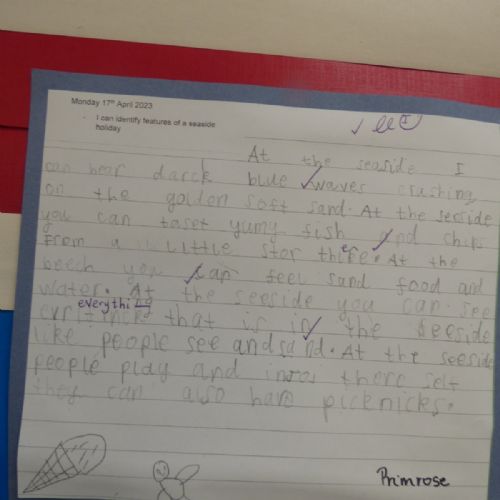 Monday 17th April 2023
- I can identify features of a seaside
holiday
At the seaside I
can hear darck blue waves crashing
on the golden soft sand. At the seeside
you can tast yumy fish and chips
from a little stor there. At the
beech you can feel sand food and
water. At the seeside you can see
everything
that is in the seeside
like people see and sand. At the seeside
people play and there self
they can also have picknicks.
Primrose